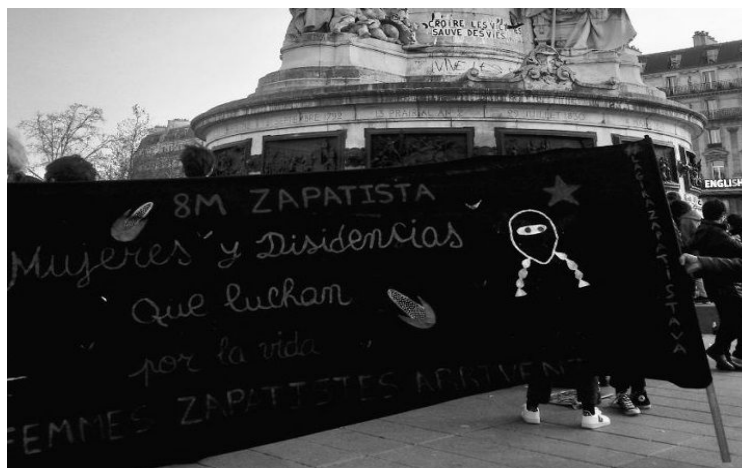 CROIRE LES
SAUVE DES VIES
VIVE
1792
ENGLISH
8M ZAPATISTA
Mujeres y Disidencias
que luchan
por la vida
FEMMES ZAPATISTES ARRIVENT
LAGIRAZAPATISTAVA